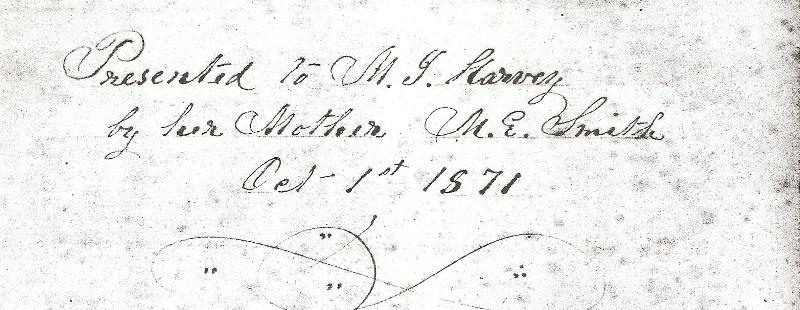 Presented to M. J. Harvey
by her Mother M. E. Smith
Oct 1st 1871